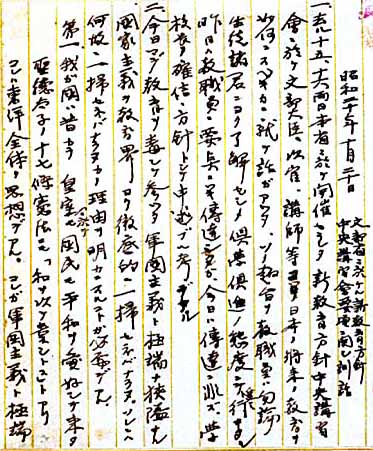 昭和二十年十月二十日
文部省ニ於ケル新教育方針
中央講習会要項ニ関シ訓話
一、去ル十五、十六両日本省ニ於テ開催セラレタ新教育方針中央講習
會ニ於テ文部大臣、次官、講師等ヨリ日本ノ将来ノ教育ヲ
如何ニスベキカニ就テ話ガアツタ、ソノ趣旨ヲ教職員ハ勿論
生徒諸君ニヨク了解セシメ倶学倶進ノ態度ニテ行キ
昨日教職員ニ要点ヲ傳達シタガ、今日ハ傳達ノ外ニ学
校長ノ確信ト方針トヲ申述ブル考デアル
二、今日マデ教育ヲ毒シ来ツタ軍国主義ト極端ナ狭隘ナ
国家主義ヲ教育界ヨリ徹底的ニ一掃セネバナラヌ、ソレハ
何故一掃セネバナラヌカノ理由ヲ明カニスルコトガ必要デアル
第一、我ガ国ハ昔ヨリ皇室モ国民モ平和ヲ愛好シテ来タ
聖徳太子ノ十七條憲法ニモ「和ヲ以テ貴シ」トアリ
コレ東洋全体ノ思想デアル。コレガ軍国主義ト極端